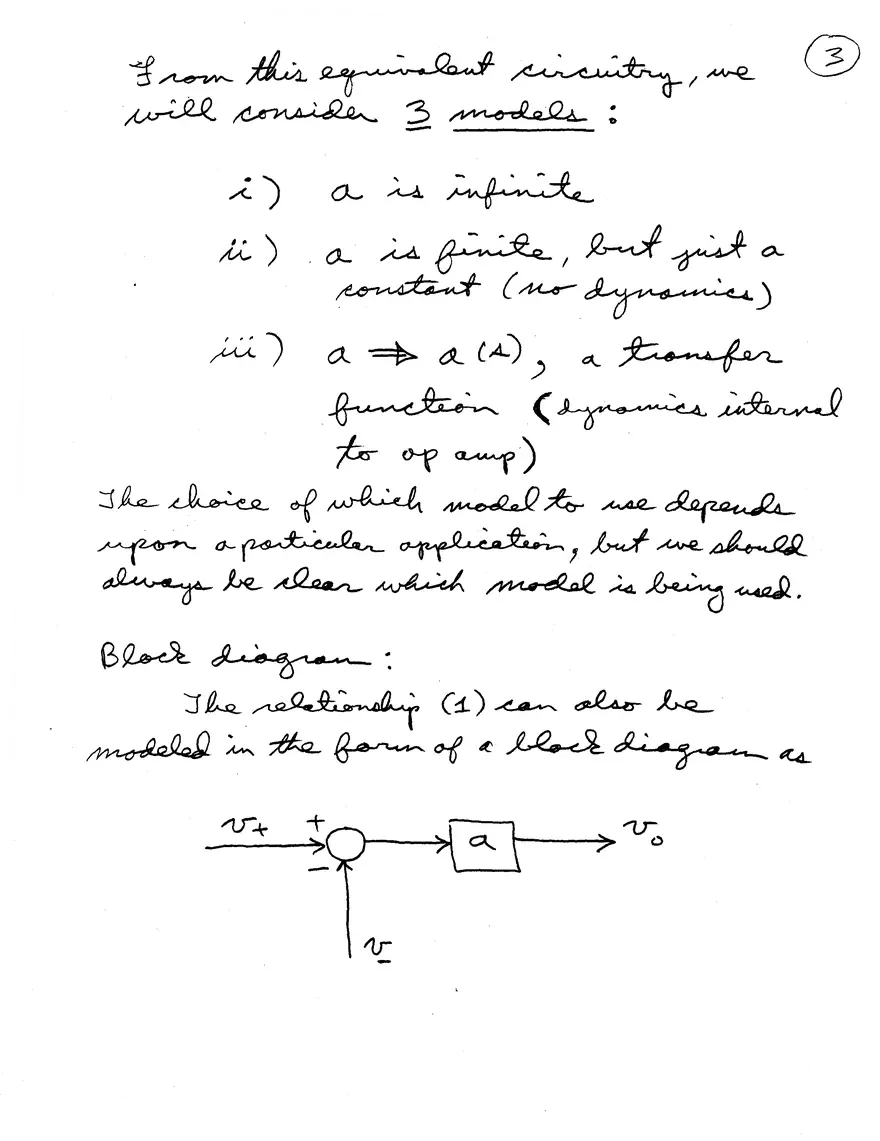 3
From this equivalent circuitry, we
will consider 3 models :
i) a is infinite
ii) a is finite, but just a
constant (no dynamics)
iii) a ⇒ a(s), a transfer
function (dynamics internal
to op amp)
The choice of which model to use depends
upon a particular application, but we should
always be clear which model is being used.
Block diagram :
The relationship (1) can also be
modeled in the form of a block diagram as
v+ + a vo
−
v-